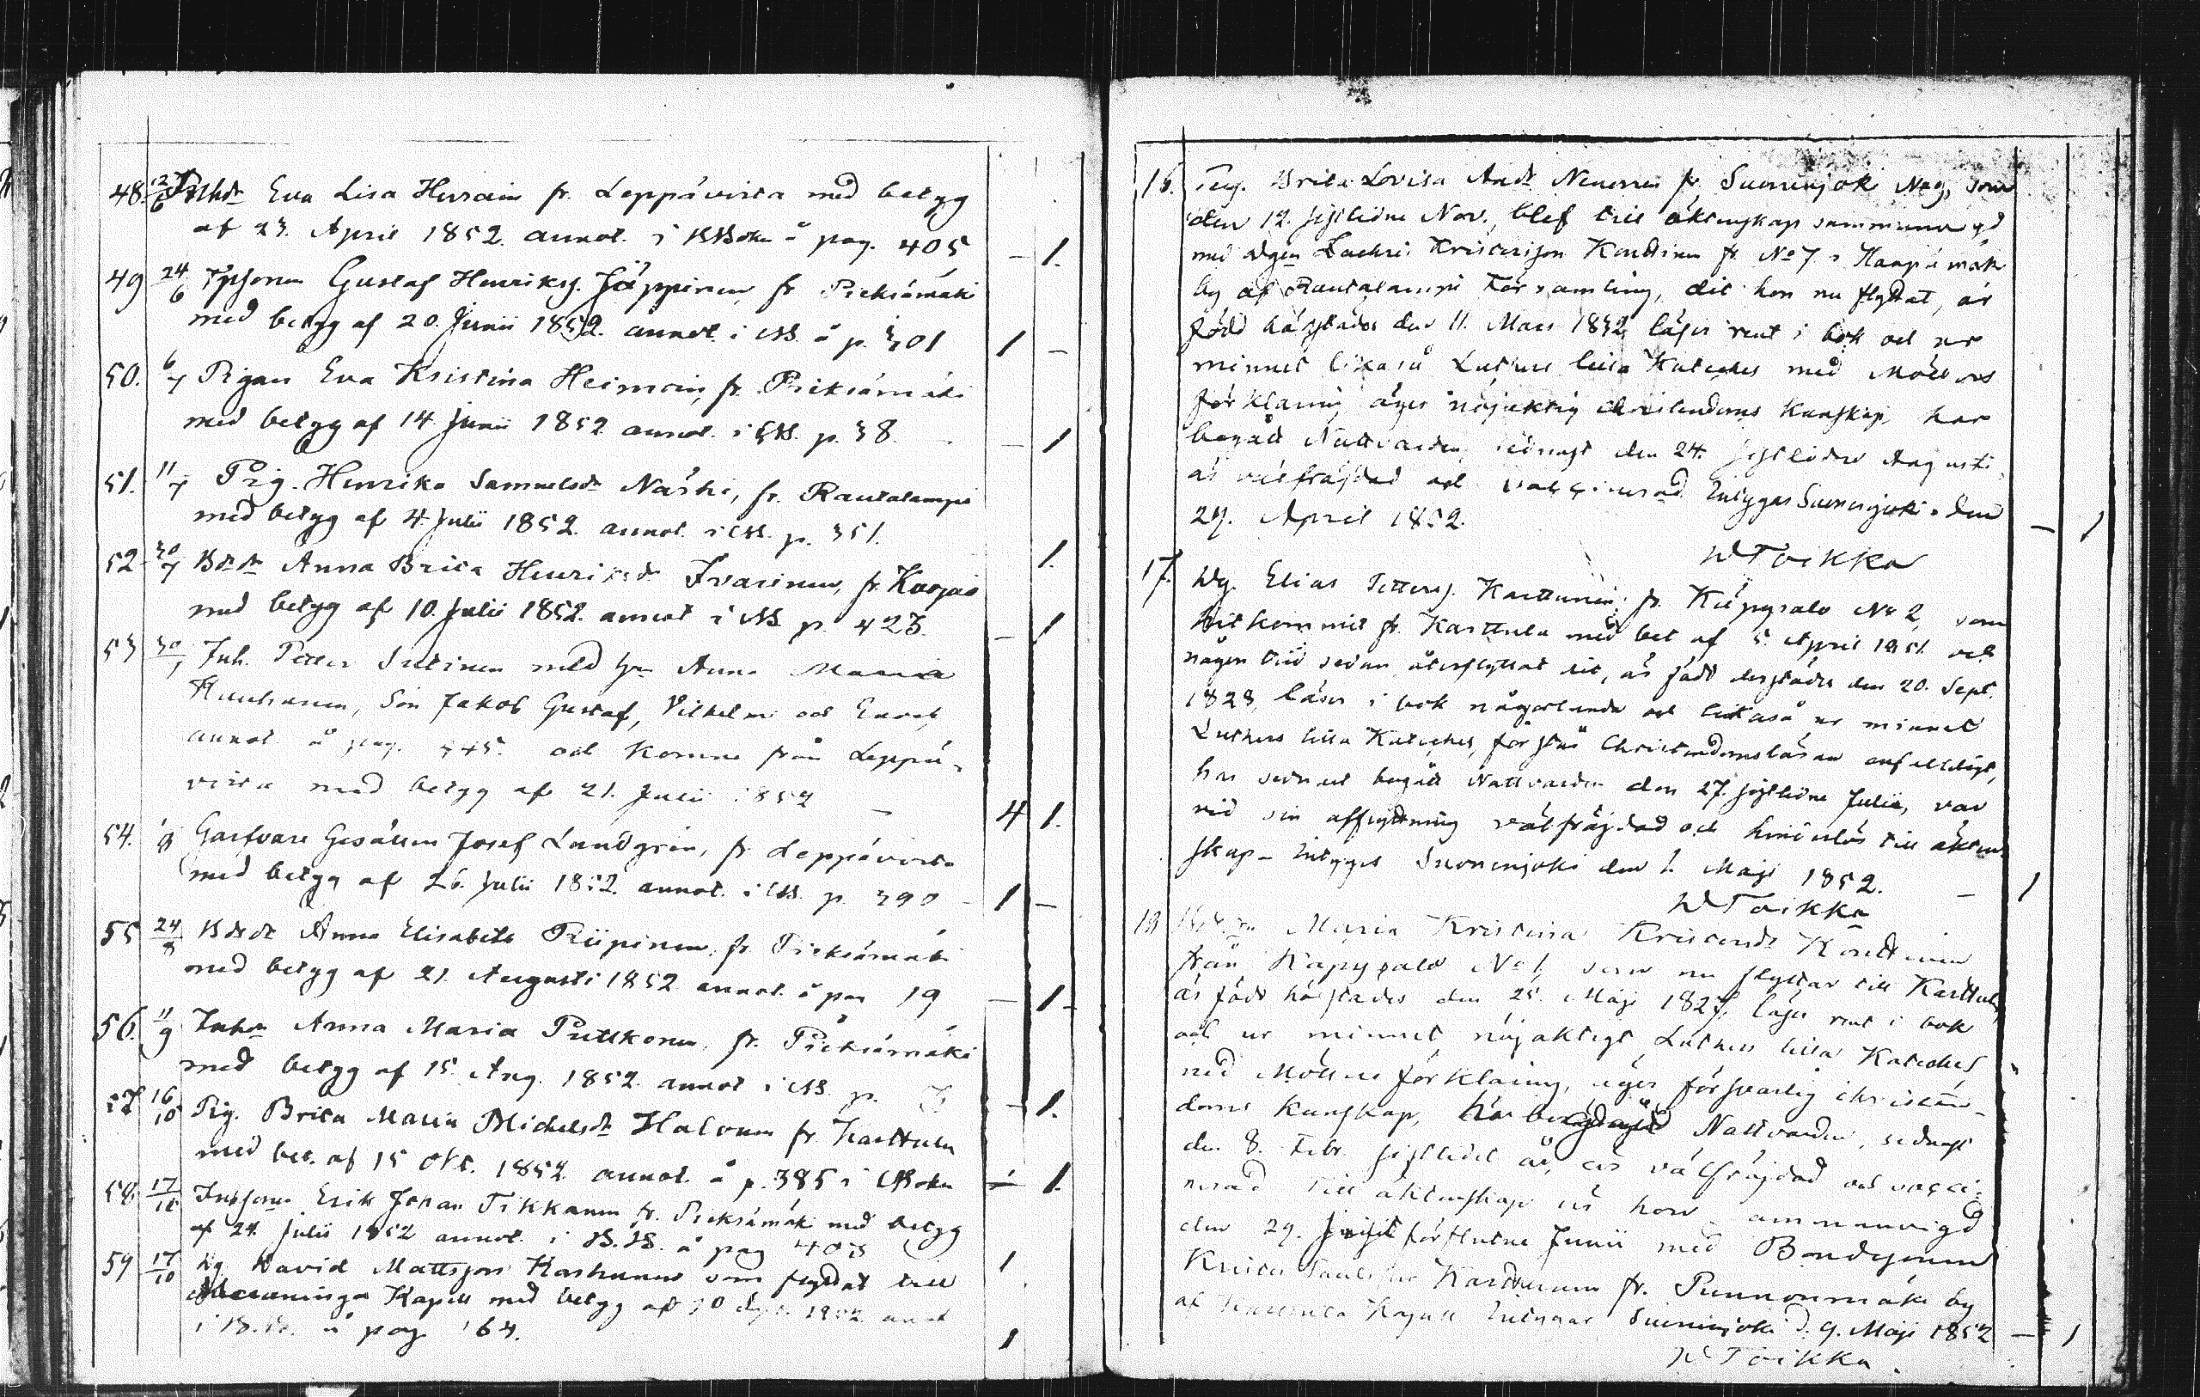 48. 12/6 Eva Lisa fr. Leppävirta med betyg
af 23. April 1852. annot. i KBoken å pag. 405 – 1.
49 24/6 Gustaf Henriks. Jäppinen fr Pieksämäki
med betyg af 20. Junii 1852. annot. i KB. å p. 301 1 –
50. 6/7 Pigan Eva Kristina Heimain, fr. Pieksämäki
med betyg af 14 Junii 1852 annot. i KB. p. 38. – 1
51. 11/7 Pig. Henrika Samuelsdr Närhi, fr. Rautalampi
med betyg af 4 Julii 1852. annot. i KB. p. 351. 1.
52 30/7 Anna Brita Henriksdr Ivarinen, fr.
med betyg af 10. Julii 1852. annot i KB p. 423. – 1
53 30/7 Inh. Petter Sutinen med Hu Anna Maria
Son Jakob Gustaf, Vilhelm och Enoch,
annot å pag. 445. och komne från Leppä-
virta med betyg af 21. Julii 1852 – 4 1.
54. Garfvare Gesällen Josef Lundgrén, fr Leppävirta
med betyg af 26. Julii 1852. annot. i KB. p. 390 – 1 –
55 24/8 Anna Elisabeth Piipinen, fr. Pieksämäki
med betyg af 21. Augusti 1852 annot. å pag 19 – 1 –
56. 11/9 Inh. Anna Maria Puttkonen, fr. Pieksämäki
med betyg af 15. Aug. 1852 annot i KB. p. – 1.
57 16/10 Pig. Brita Maria Michelsdr Halonen fr Karttula
med bet. af 15 Okt. 1852 annot. å p. 385 i KBoken – 1.
58. 17/10 Erik Johan Tikkanen fr. Pieksämäki med betyg
af 24. Julii 1852 annot. i K.B. å pag 403 1
59 17/10 Dg David Mattsson Karhunen som flyttat till
Kapell med betyg af 1852 annot
i K.B. å pag 164. 1
16. Pig. Brita Lovisa Andr Nenonen fr Suonenjoki No 9, som
den 12. sistlidne Nov. blef till äktenskap sammanvigd
med Drgen Zachri Kristersson Konttinen fr. No 7 i Haapamäki
by af Rautalampi Församling, dit hon nu flyttat, är
född härstädes den 11. Mars 1832, läser rent i bok och ur
minnet likaså Luthers lilla Kateches med Möllers
förklaring äger nöjaktig christendoms Kunskap, har
begått Nattvarden sednast den 24. sistlidne Augusti,
är välfräjdad och vaccinerad. Intygar Suonenjoki den
29. April 1852. – 1
W Toikka
17. Dg. Elias Petters. Karttunen fr. Käpysalo No 2, som
hit kommit fr. Karttula med bet af 5. April 1851 och
någon tid sedan återflyttat dit, är född derstädes den 20. Sept.
1828, läser i bok någorlunda och likaså ur minnet
Luthers lilla Kateches, förstår Christendomsläran enfaldigt,
har sednast begått Nattvarden den 27. sistlidne Julii, var
vid sin afflyttning välfräjdad och hinderlös till äkten-
skap – Intygas Suonenjoki den 1. Maji 1852. – 1
W Toikka
18 Maria Kristina Kristersdr Konttinen
från Käpysalo No 1, som nu flyttar till Karttula,
är född härstädes den 25. Maji 1827, läser rent i bok
och ur minnet nöjaktigt Luthers lilla Kateches
med Möllers förklaring, äger försvarlig christen-
doms Kunskap, har begått Nattvarden, sednast
den 8. Febr. sistlidet år, är välfräjdad och vacci-
nerad. Till äktenskap är hon sammanvigd
den 29. förflutne Junii med Bondesonen
Krister Karttunen fr. Punnonmäki by
af Karttula Kapell Intygar Suonenjoki d. 9. Maji 1852 – 1
W Toikka.